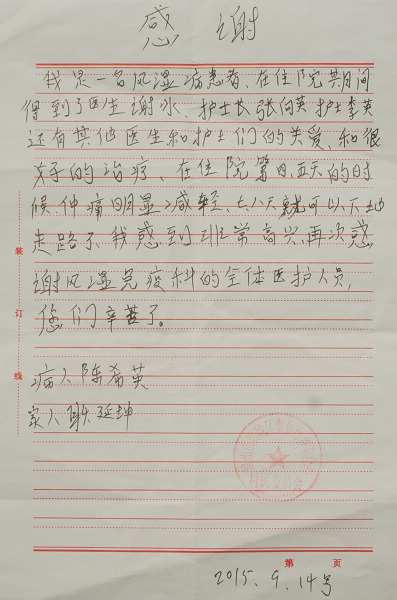 感谢
我是一名风湿病患者、在住院其月间
得到了医生谢冰、护士长张向英护士李英
还有其他医生和护士们的关爱、和很
好的治疗、在住院第四,五天的日时
候、伸痛明显减轻、七八天就可以下地
走路了、我感到非常高兴,再次感
谢风湿免疫科的全体医护人员,
您们辛苦了。
病人陈希英
家人耿延坤
装
订
线
第 页
2015、9、14号